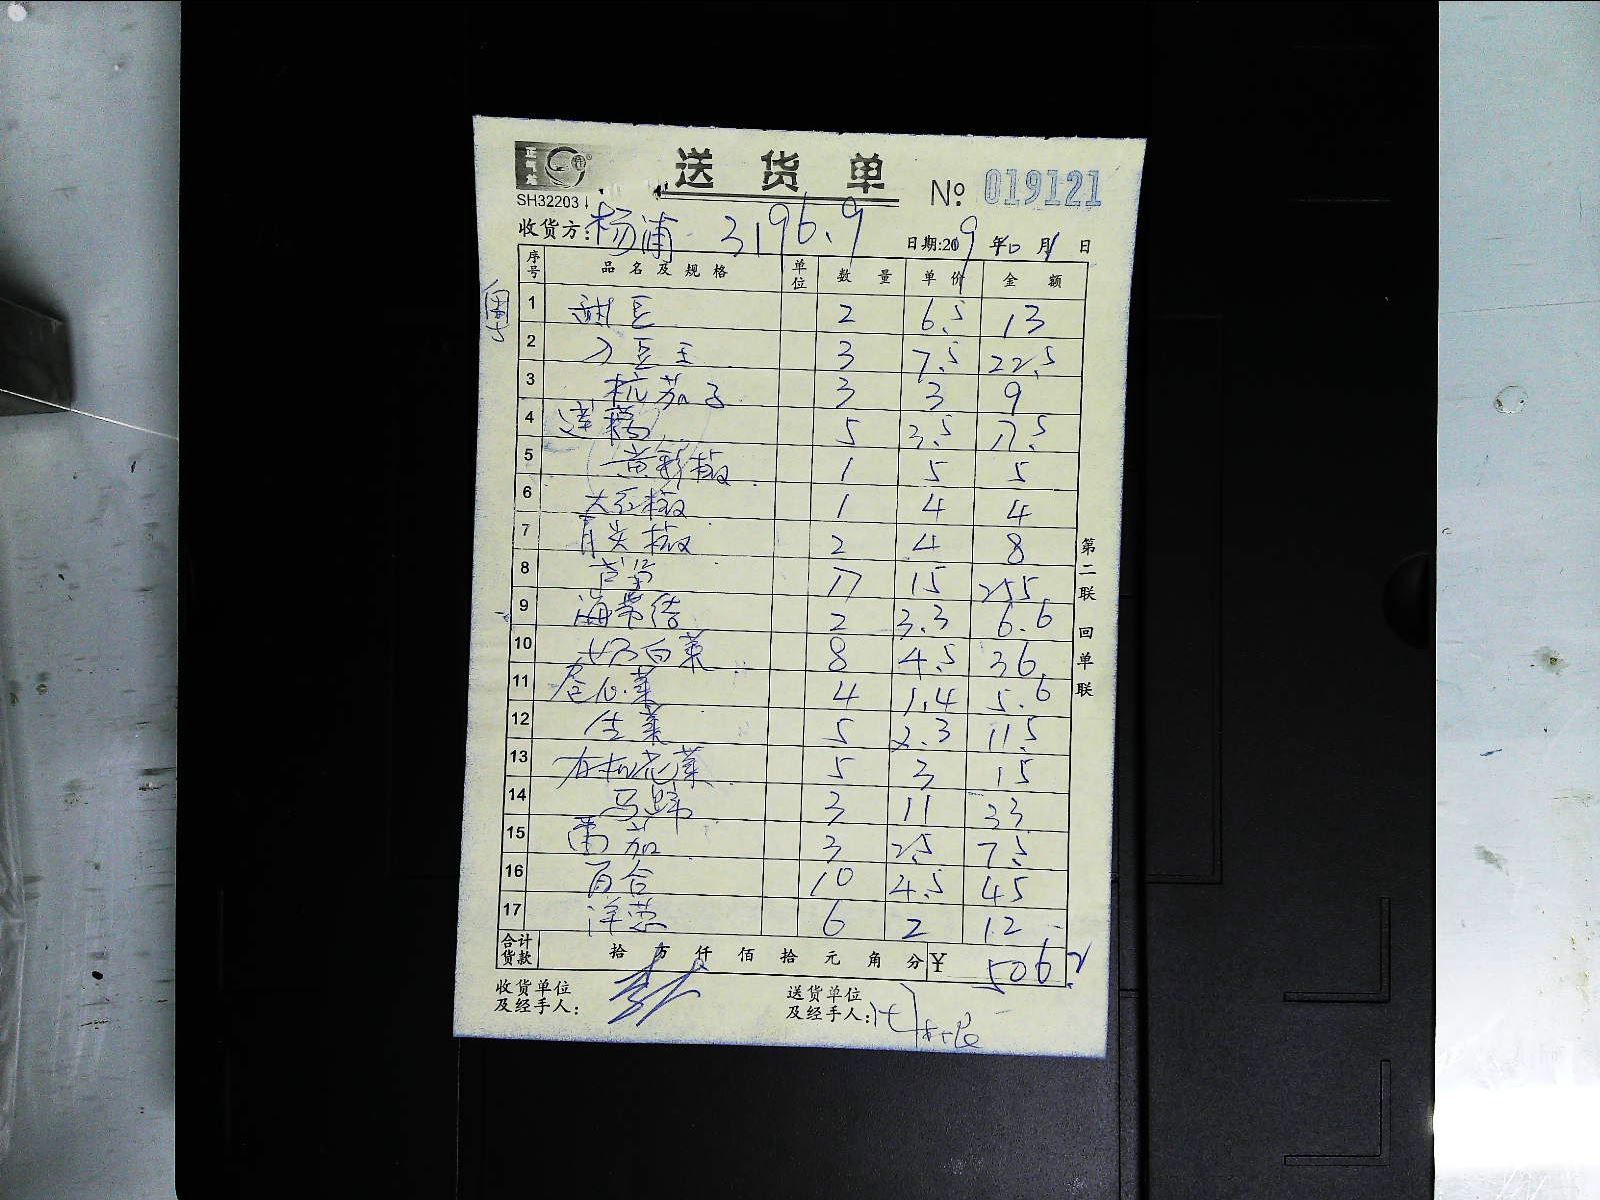 正气龙
送货单
№ 019121
SH32203
收货方: 杨浦 3196.9
日期:2019年10月1日
序号 品名及规格 单位 数量 单价 金额
1 甜豆 2 6.5 13
2 刀豆王 3 7.5 22.5
3 杭茄子 3 3 9
4 莲藕 5 3.5 17.5
5 黄彩椒 1 5 5
6 大红椒 1 4 4
7 青尖椒 2 4 8
8 芦笋 17 15 255
9 海带结 2 3.3 6.6
10 奶白菜 8 4.5 36
11 卷心菜 4 1.4 5.6
12 生菜 5 2.3 11.5
13 有机花菜 5 3 15
14 马蹄 3 11 33
15 番茄 3 2.5 7.5
16 百合 10 4.5 45
17 洋葱 6 2 12
合计货款 拾万仟佰拾元角分 ¥ 506.2
收货单位
及经手人:
送货单位
及经手人:
第二联 回单联